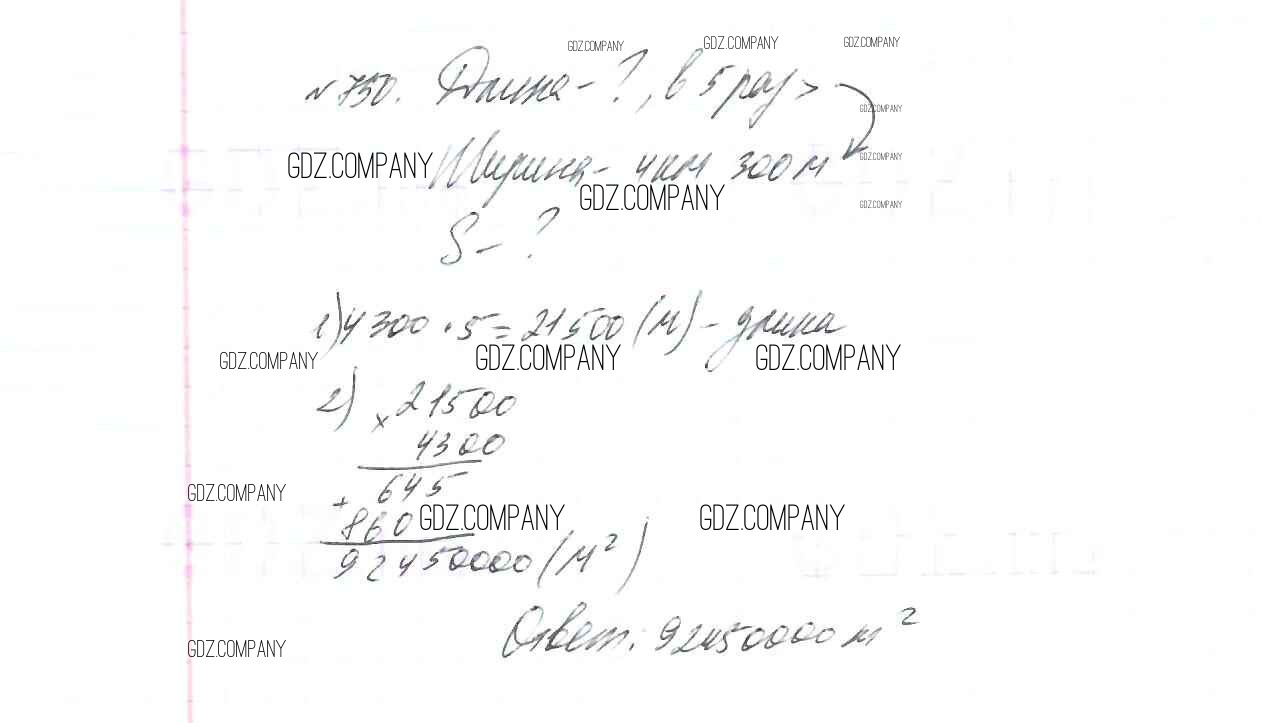 GDZ.COMPANY GDZ.COMPANY GDZ.COMPANY
№ 750. Длина - ?, в 5 раз >
GDZ.COMPANY
GDZ.COMPANY Ширина - 4 км 300 м GDZ.COMPANY
GDZ.COMPANY GDZ.COMPANY
S - ?
1) 4300 · 5 = 21500 (м) - длина
GDZ.COMPANY GDZ.COMPANY GDZ.COMPANY
2) × 21500
4300
GDZ.COMPANY + 645
860 GDZ.COMPANY GDZ.COMPANY
92450000 (м²)
Ответ: 92450000 м²
GDZ.COMPANY